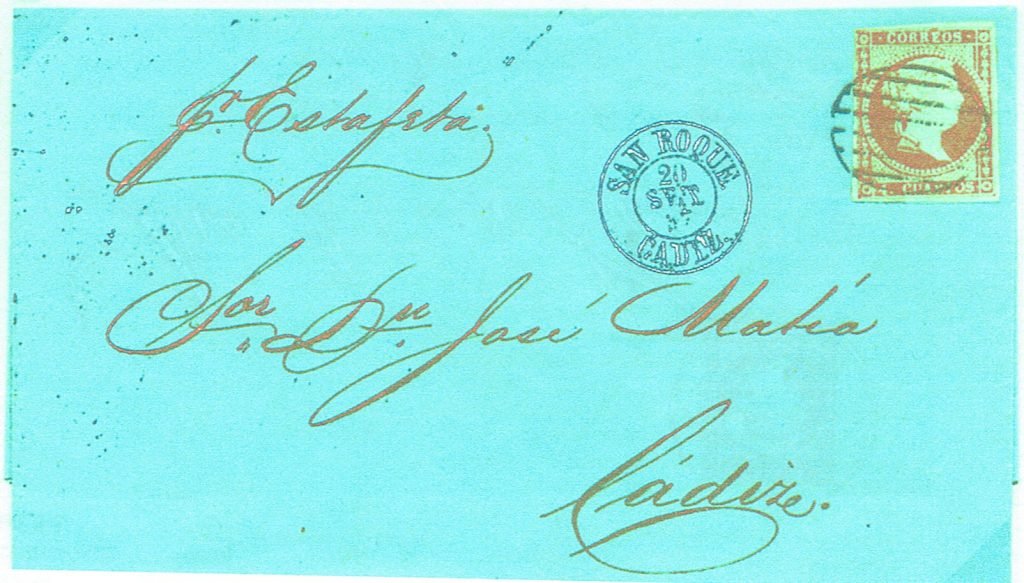 CORREOS
CUARTOS
pr Estafeta.
SAN ROQUE
20
SET
CADIZ.
Sor Dn. José Matía
Cádiz.